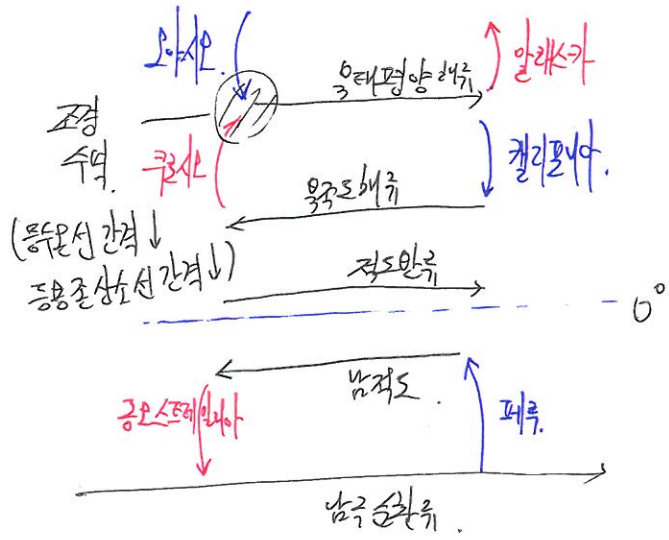 오야시오
북태평양 해류
알래스카
조경
수역.
쿠로시오
캘리포니아.
북적도 해류
(등수온선 간격↓
등용존산소선 간격↓)
적도반류
0°
남적도.
동오스트레일리아
페루.
남극 순환류.